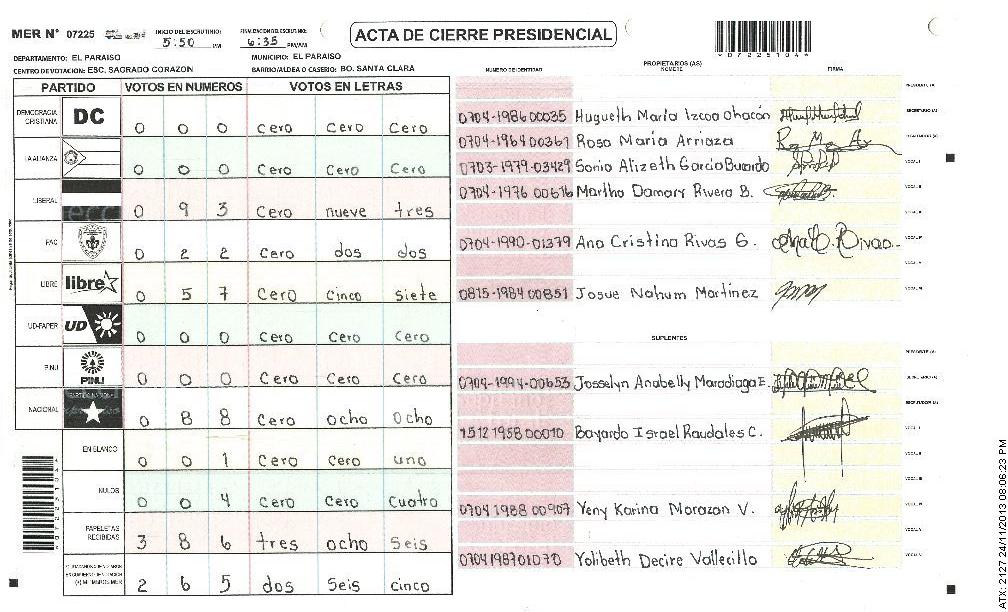 MER N° 07225
INICIO DEL ESCRUTINIO:
5:50 PM
FINALIZACION DEL ESCRUTINIO:
6:35 PM/AM
ACTA DE CIERRE PRESIDENCIAL
DEPARTAMENTO: EL PARAISO
MUNICIPIO: EL PARAISO
CENTRO DE VOTACION: ESC. SAGRADO CORAZON
BARRIO/ALDEA O CASERIO: BO. SANTA CLARA
PARTIDO VOTOS EN NUMEROS VOTOS EN LETRAS
DEMOCRACIA CRISTIANA DC 0 0 0 Cero Cero Cero
LA ALIANZA 0 0 0 Cero Cero Cero
LIBERAL 0 9 3 Cero nueve tres
PAC 0 2 2 Cero dos dos
LIBRE libre 0 5 7 Cero Cinco Siete
UD-FAPER UD 0 0 0 Cero Cero Cero
PINU PINU 0 0 0 Cero Cero Cero
NACIONAL 0 8 8 Cero ocho Ocho
EN BLANCO 0 0 1 Cero Cero uno
NULOS 0 0 4 Cero Cero Cuatro
PAPELETAS RECIBIDAS 3 8 6 tres ocho Seis
2 6 5 dos Seis cinco
NUMERO DE IDENTIDAD
PROPIETARIOS (AS)
NOMBRE
FIRMA
0704-1986 00035 Hugueth Maria Izcoa Chacón
0704-1964 00361 Rosa Maria Arriaza
0703-1979-03429 Sonia Alizeth Garcia
0704-1976 00616 Martha Damary Rivera B.
0704-1990-01379 Ana Cristina Rivas G.
0815-1984 00851 Josue Nahum Martinez
SUPLENTES
0704-1994-00653 Josselyn Anabelly Maradiaga E.
1512 1958 00010 Bayardo Israel Raudales C.
0704 1988 00907 Yeny Karina Morazan V.
0704198701070 Yolibeth Decire Vallecillo
ATX: 2127 24/11/2013 08:06:23 PM